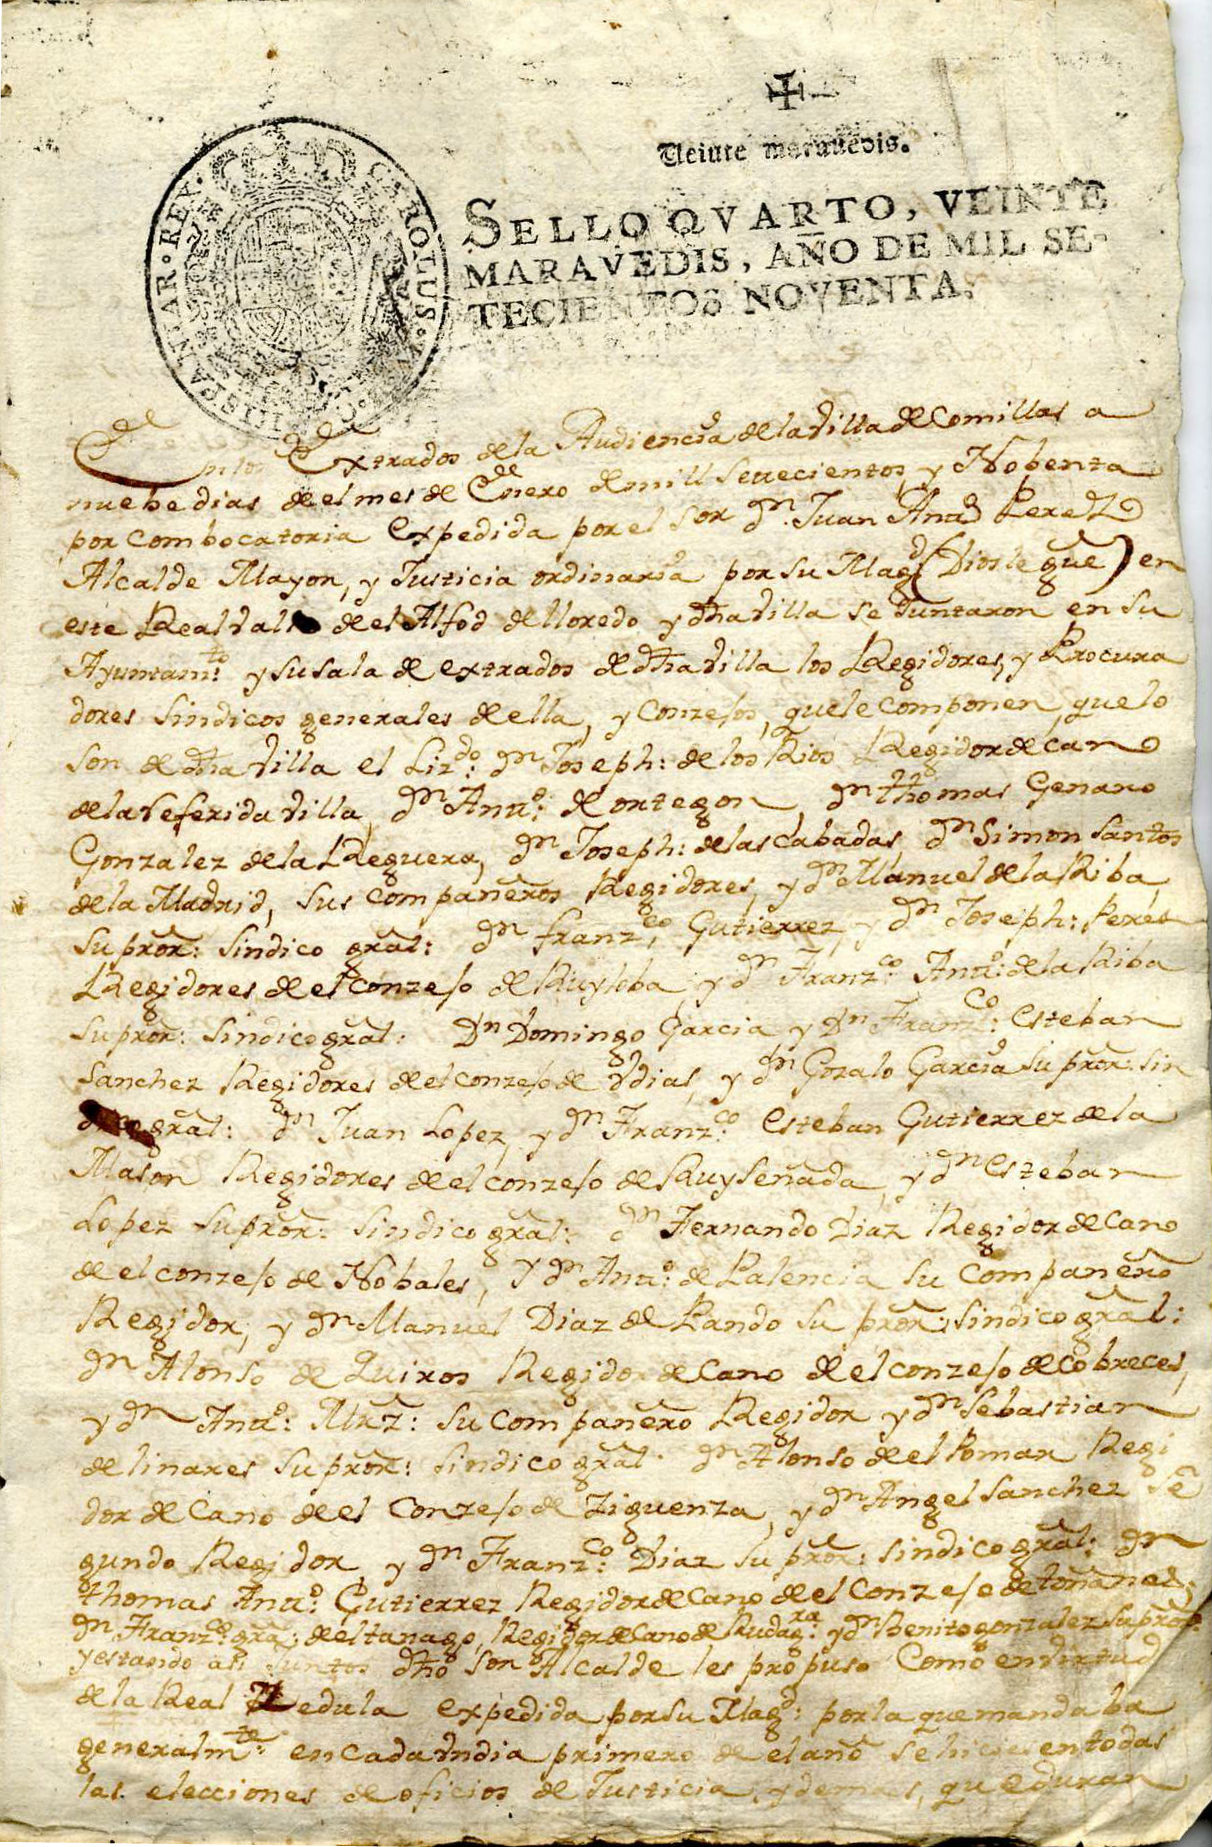 Veinte maravedis.
SELLO QVARTO, VEINTE
MARAVEDIS, AÑO DE MIL SE-
TECIENTOS NOVENTA.
CAROLUS HISPANIAR REX
En los Extrados de la Audiencia de la Villa de Comillas a
nuebe dias de el mes de Enero de mill Settecientos, y Nobenta
por combocatoria Expedida por el Sor Dn. Juan Anto Perez
Alcalde Mayor, y Justicia ordinaria por su Magd (Dios le gue) en
este Real Valle de el Alfoz de lloredo y dha Villa se Juntaron en su
Ayuntamto: y su sala de extrados de dha Villa los Regidores, y Procura
dores Sindicos generales de ella, y Conzejos, que le componen, que lo
son de dha Villa el Lizdo: Dn Joseph: de los Rios Regidor de Cano
de la referida Villa, Dn Anto: de Ortegon, Dn thomas Genaro
Gonzalez de la Reguera, Dn Joseph: de las Cabadas, Dn Simon Santos
de la Madrid, sus Compañeros Regidores, y Dn Manuel de la Riba,
su pror: Sindico gral: Dn franzco: Gutierrez, y Dn Joseph: Perez
Regidores de el conzejo de Ruyloba, y Dn Franzco: Anto: de la Riba
su pror: Sindico gral: Dn Domingo Garcia y Dn Franzco: Esteban
Sanchez Regidores de el conzejo de Vdias, y Dn Gozalo Garcia su pror: sin
dico gral: Dn Juan Lopez, y Dn Franzco: Esteban Gutierrez de la
Mason Regidores de el conzejo de Ruyseñada, y Dn Esteban
Lopez su pror: Sindico gral: Dn Fernando Diaz Regidor de Cano
de el conzejo de Nobales, y Dn Anto: de Palencia su Compañero
Regidor, y Dn Manuel Diaz de Pando su pror: sindico gral:
Dn Alonso de Quiros Regidor de Cano de el conzejo de Cobreces,
y Dn Anto: Mrz: su Compañero Regidor y Dn Sebastian
de linares su pror: sindico gral. Dn Alonso de el Pomar Regi
dor de Cano de el Conzejo de Ziguenza, y Dn Angel Sanchez Se
gundo Regidor, y Dn Franzco: Diaz su pror: sindico gral: Dn
thomas Anto: Gutierrez Regidor de Cano de el Conzejo de toñanes,
Dn Franzco: gra: de el tanago, Regidor de Cano de Rudagra: y Dn Benito gonzalez su pror:
y estando asi Juntos dho Sor Alcalde les propuso Como en virtud
de la Real Zedula expedida por su Magd: por la que mandaba
generalmte: en cada un dia primero de el año se hiciesen todas
las elecciones de oficios de Justicia, y demas, que duran